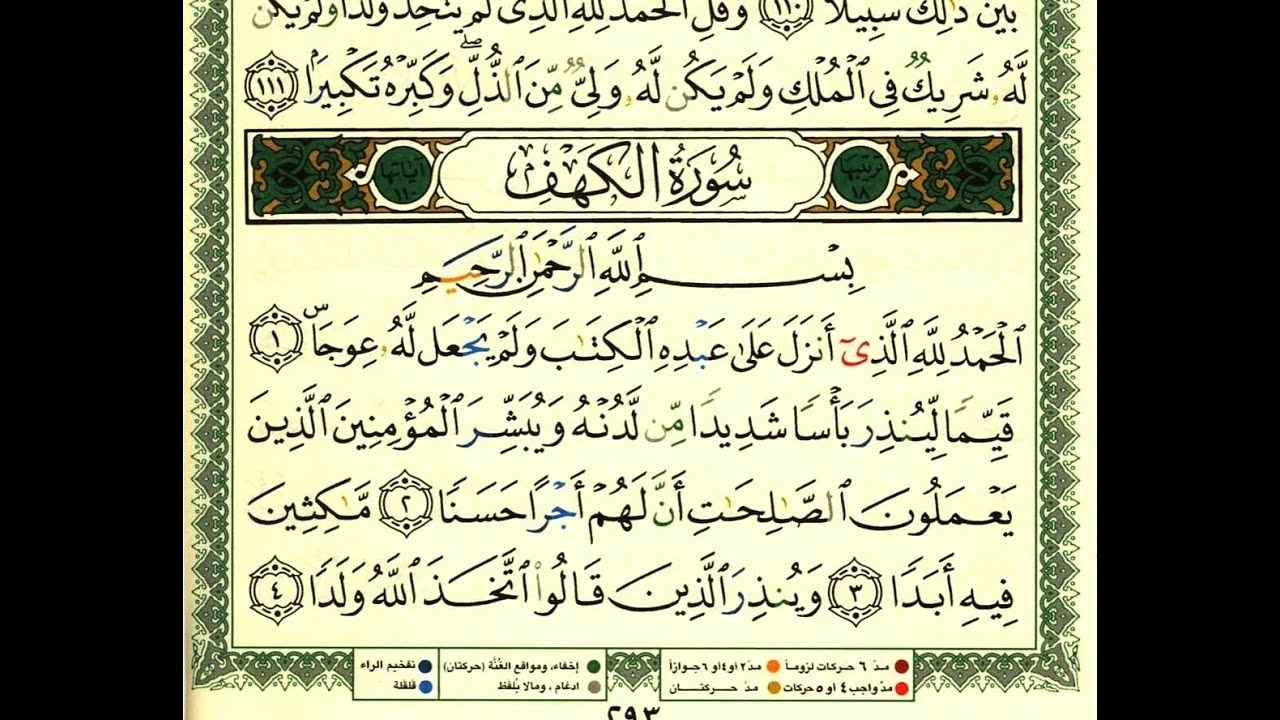 بَيْنَ ذَٰلِكَ سَبِيلًا ١١٠ وَقُلِ ٱلْحَمْدُ لِلَّهِ ٱلَّذِى لَمْ يَتَّخِذْ وَلَدًا وَلَمْ يَكُن
لَّهُۥ شَرِيكٌ فِى ٱلْمُلْكِ وَلَمْ يَكُن لَّهُۥ وَلِىٌّ مِّنَ ٱلذُّلِّ ۖ وَكَبِّرْهُ تَكْبِيرًۢا ١١١
ترتيبها ١٨ سُورَةُ ٱلْكَهْفِ آياتها ١١٠
بِسْمِ ٱللَّهِ ٱلرَّحْمَٰنِ ٱلرَّحِيمِ
ٱلْحَمْدُ لِلَّهِ ٱلَّذِىٓ أَنزَلَ عَلَىٰ عَبْدِهِ ٱلْكِتَٰبَ وَلَمْ يَجْعَل لَّهُۥ عِوَجَاۜ ١
قَيِّمًا لِّيُنذِرَ بَأْسًا شَدِيدًا مِّن لَّدُنْهُ وَيُبَشِّرَ ٱلْمُؤْمِنِينَ ٱلَّذِينَ
يَعْمَلُونَ ٱلصَّٰلِحَٰتِ أَنَّ لَهُمْ أَجْرًا حَسَنًا ٢ مَّٰكِثِينَ
فِيهِ أَبَدًا ٣ وَيُنذِرَ ٱلَّذِينَ قَالُوا۟ ٱتَّخَذَ ٱللَّهُ وَلَدًا ٤
مدّ ٦ حركات لزوماً مدّ ٢ أو ٤ أو ٦ جوازاً إخفاء، ومواقع الغُنَّة (حركتان) تفخيم الراء
مدّ واجب ٤ أو ٥ حركات مدّ حركتان ادغام، ومالا يُلفَظ قلقلة
٢٩٣